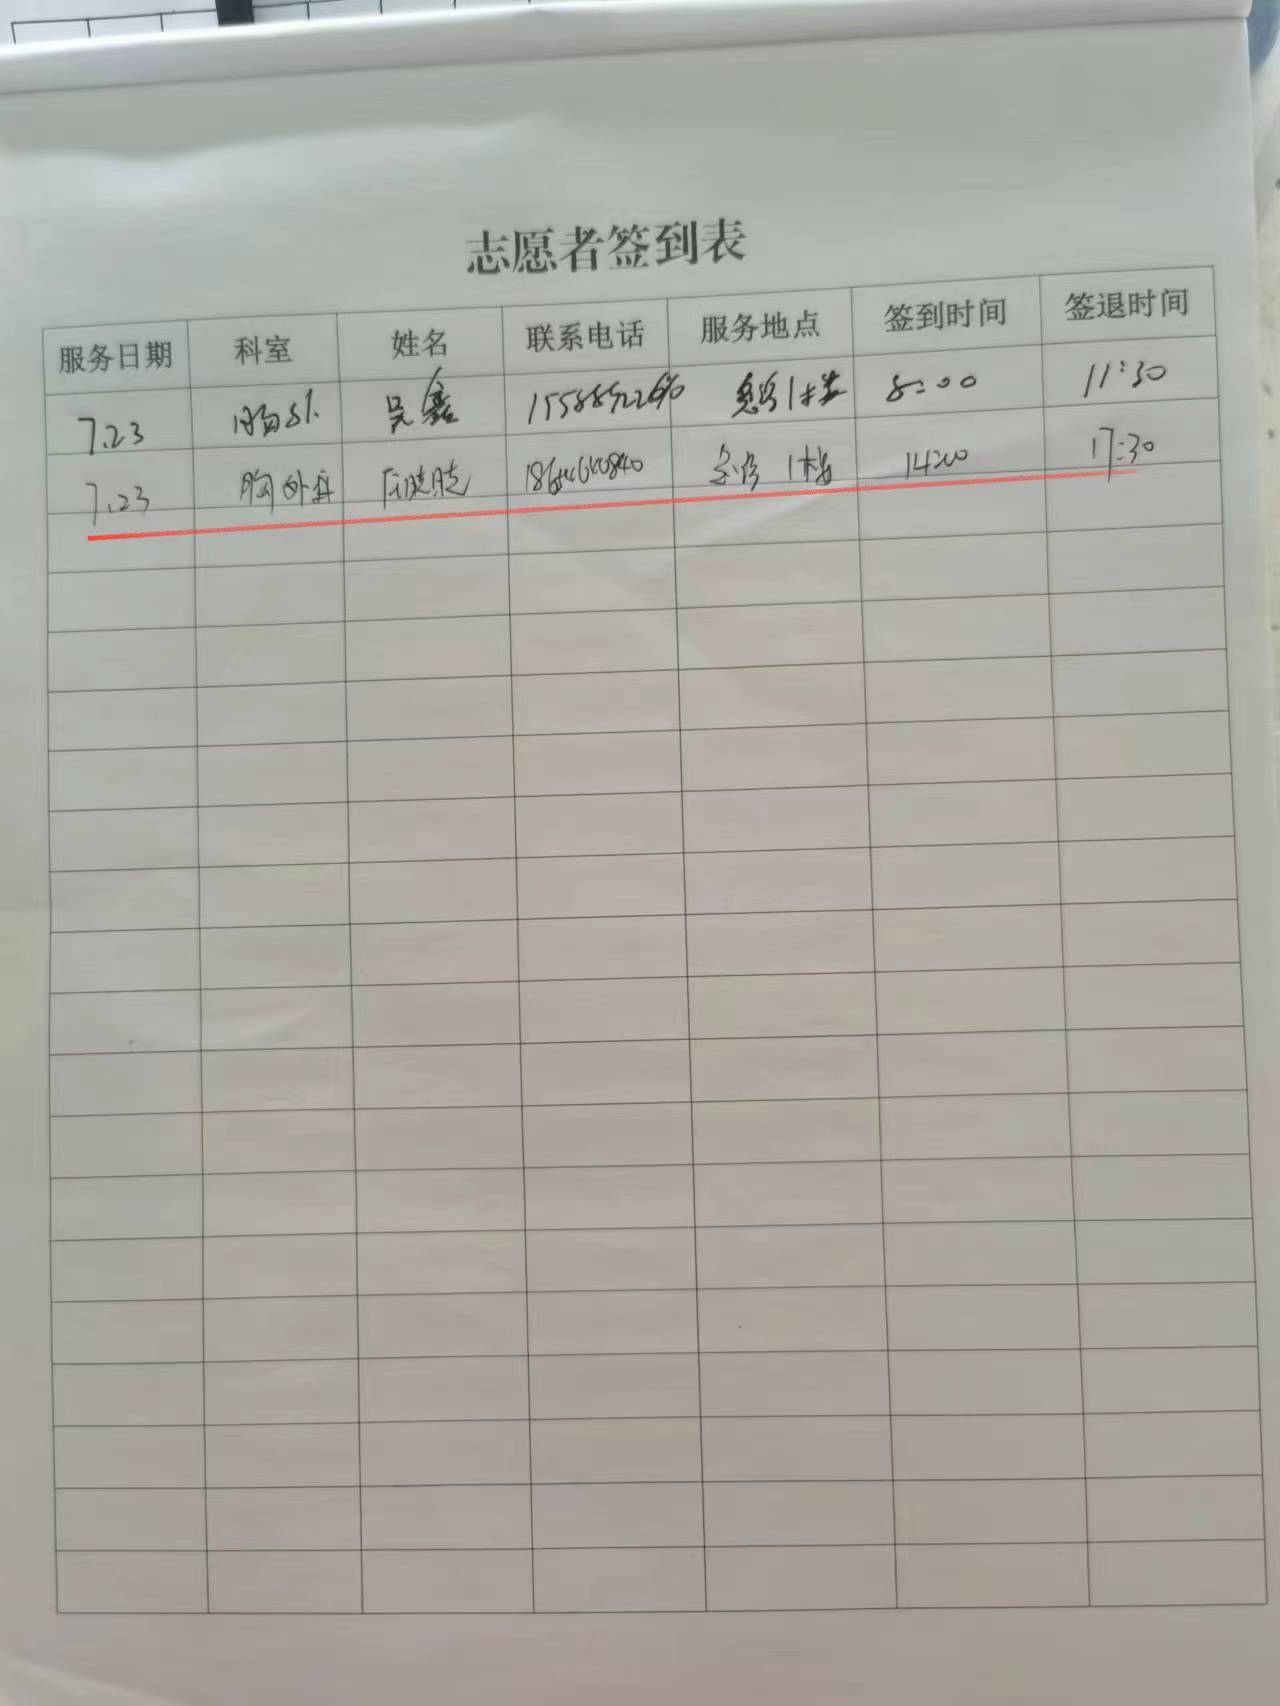 志愿者签到表
服务日期 科室 姓名 联系电话 服务地点 签到时间 签退时间
7.23 胸外 吴鑫 1楼 8:00 11:30
7.23 胸外科 晓晓 1楼 14:00 17:30